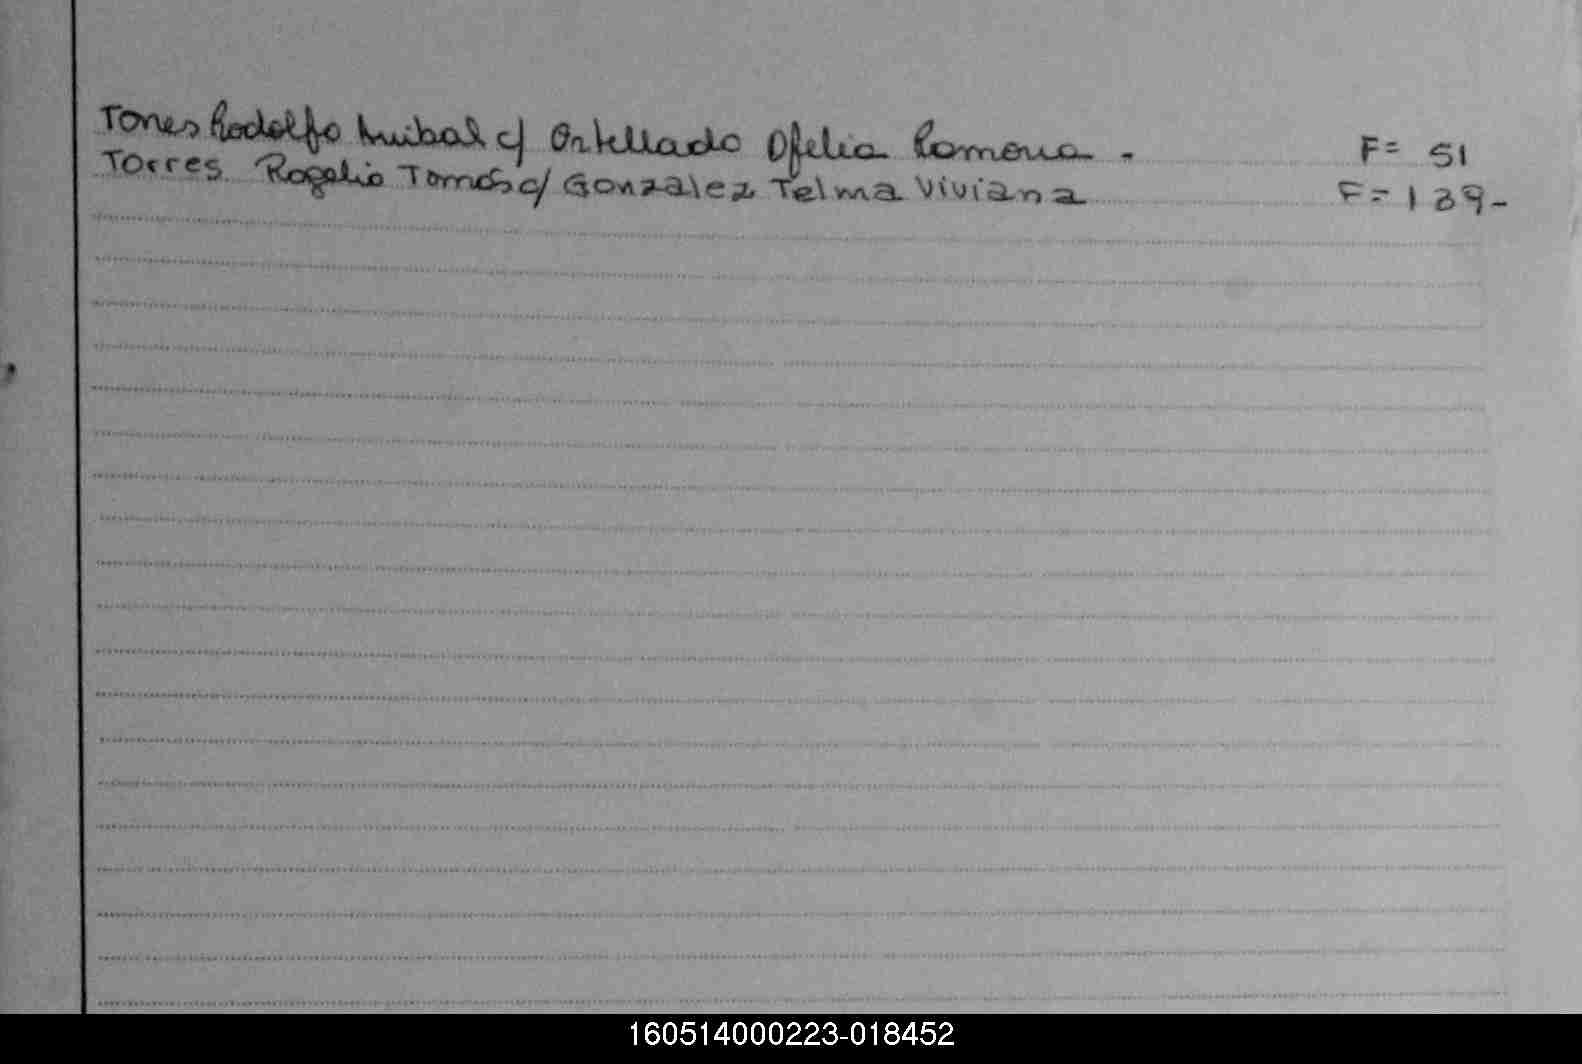 Torres Rodolfo Anibal c/ Ortellado Ofelia Ramona - F= 51
Torres Rogelio Tomás c/ Gonzalez Telma Viviana F= 139-
160514000223-018452